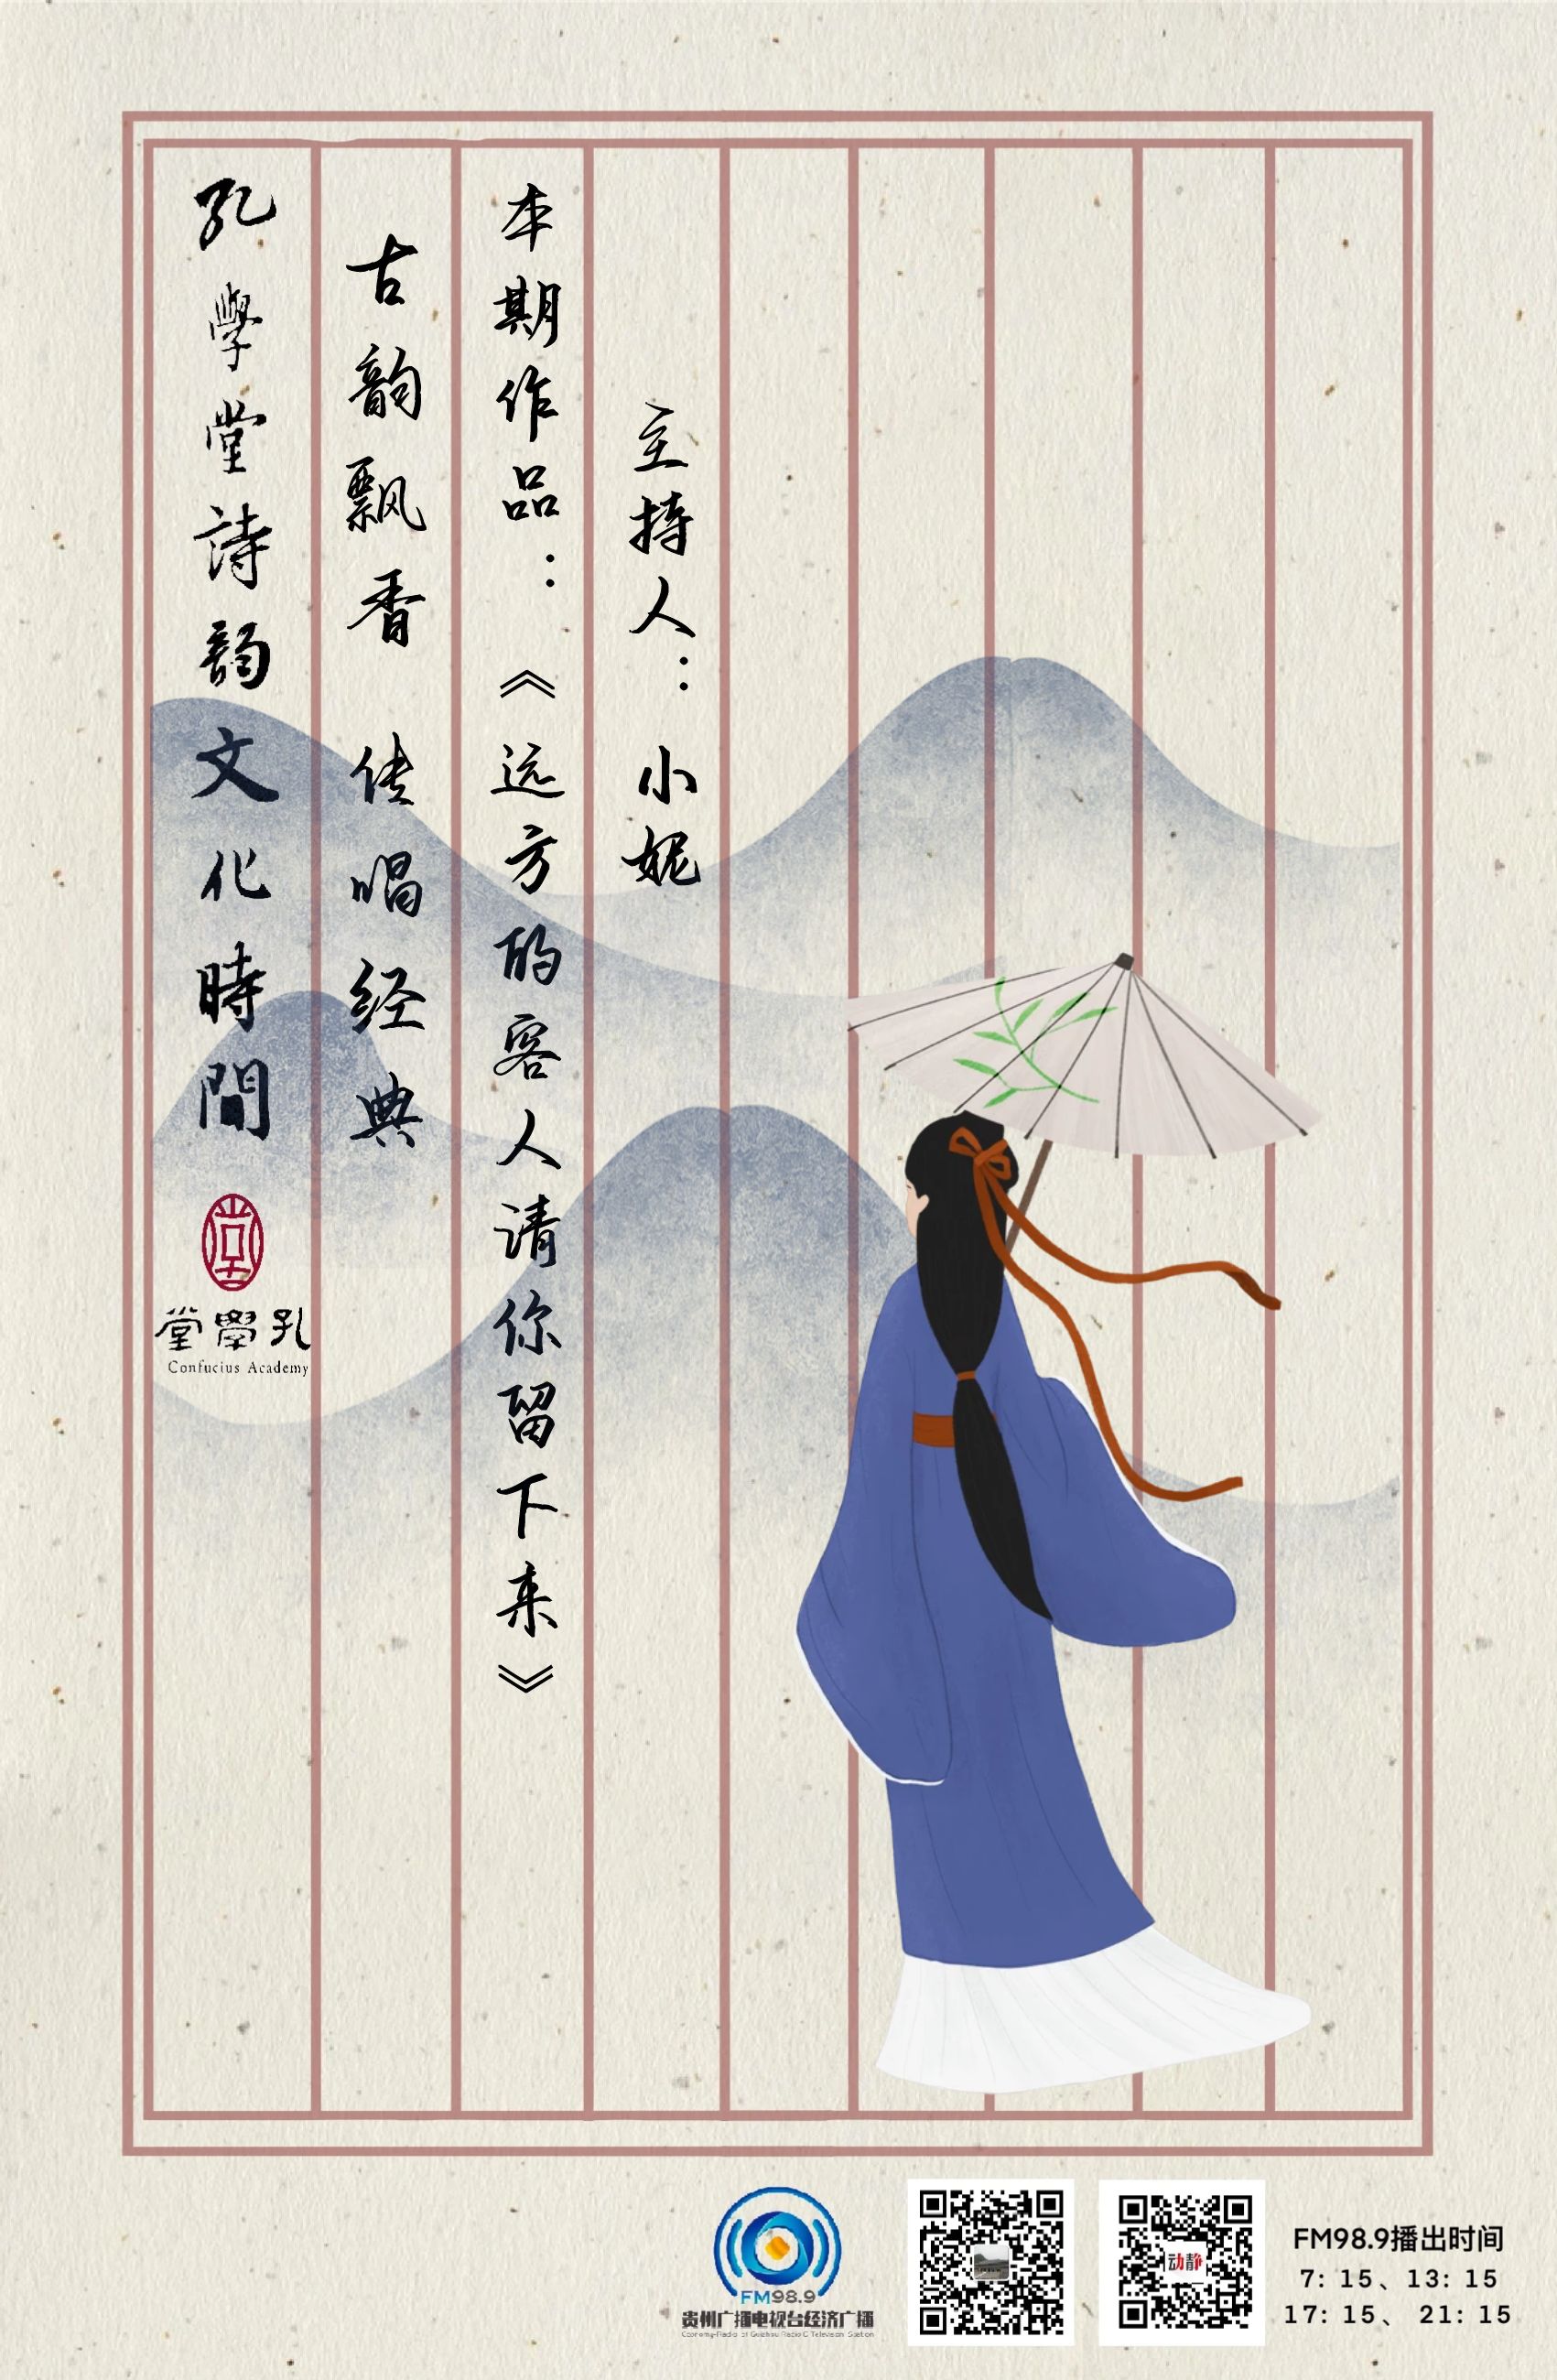 孔學堂詩韵文化時間
古韵飘香 传唱经典
本期作品：《远方的客人请你留下来》
主持人：小妮
堂學孔
Confucius Academy
FM98.9
贵州广播电视台经济广播
动静
FM98.9播出时间
7: 15、13: 15
17: 15、 21: 15